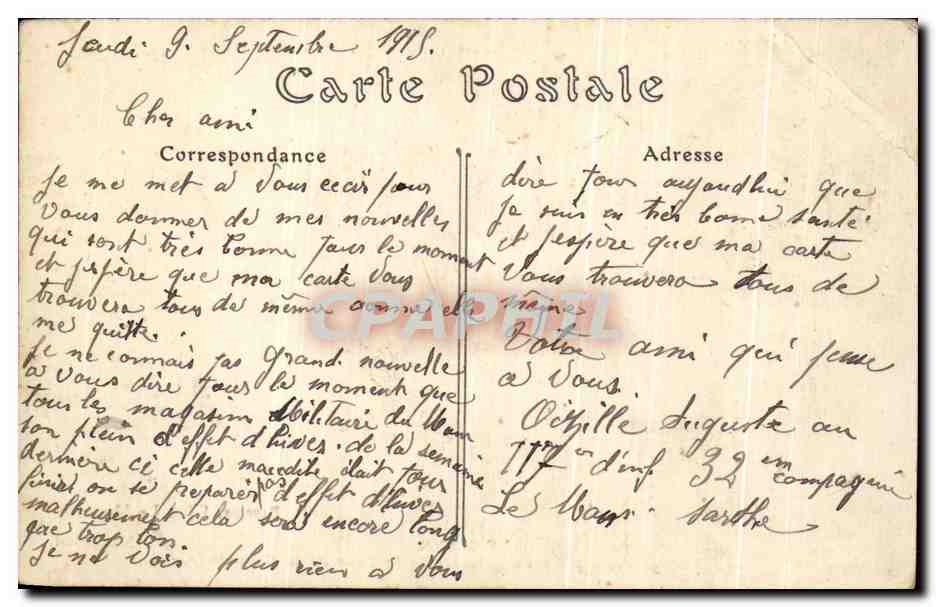 Jeudi 9. Septembre 1915.
Carte Postale
Cher ami
Correspondance
Je me met à Vous ceci pour
Vous donner de mes nouvelles
qui sont très bonne pour le moment
et j'espère que ma carte Vous
trouvera tous de même comme elle
me quitte.
Je ne connais pas grand nouvelle
à Vous dire pour le moment que
tous les magasin Militaire du Mans
son plein d'effet d'hiver. de la semaine
dernière ci cette maudite était pour
finir on se preparer pas d'effet d'hiver
malheusement cela sera encore long
que trop ton
Je ne Vois plus rien à Vous
Adresse
dire pour aujourdhui que
Je suis en très bonne santé
et j'espère que ma carte
Vous trouvera tous de
même
Votre ami qui pense
à Vous
Auguste au
117 em d'inf 32 em compagnie
Le Mans. Sarthe
CPAPHIL